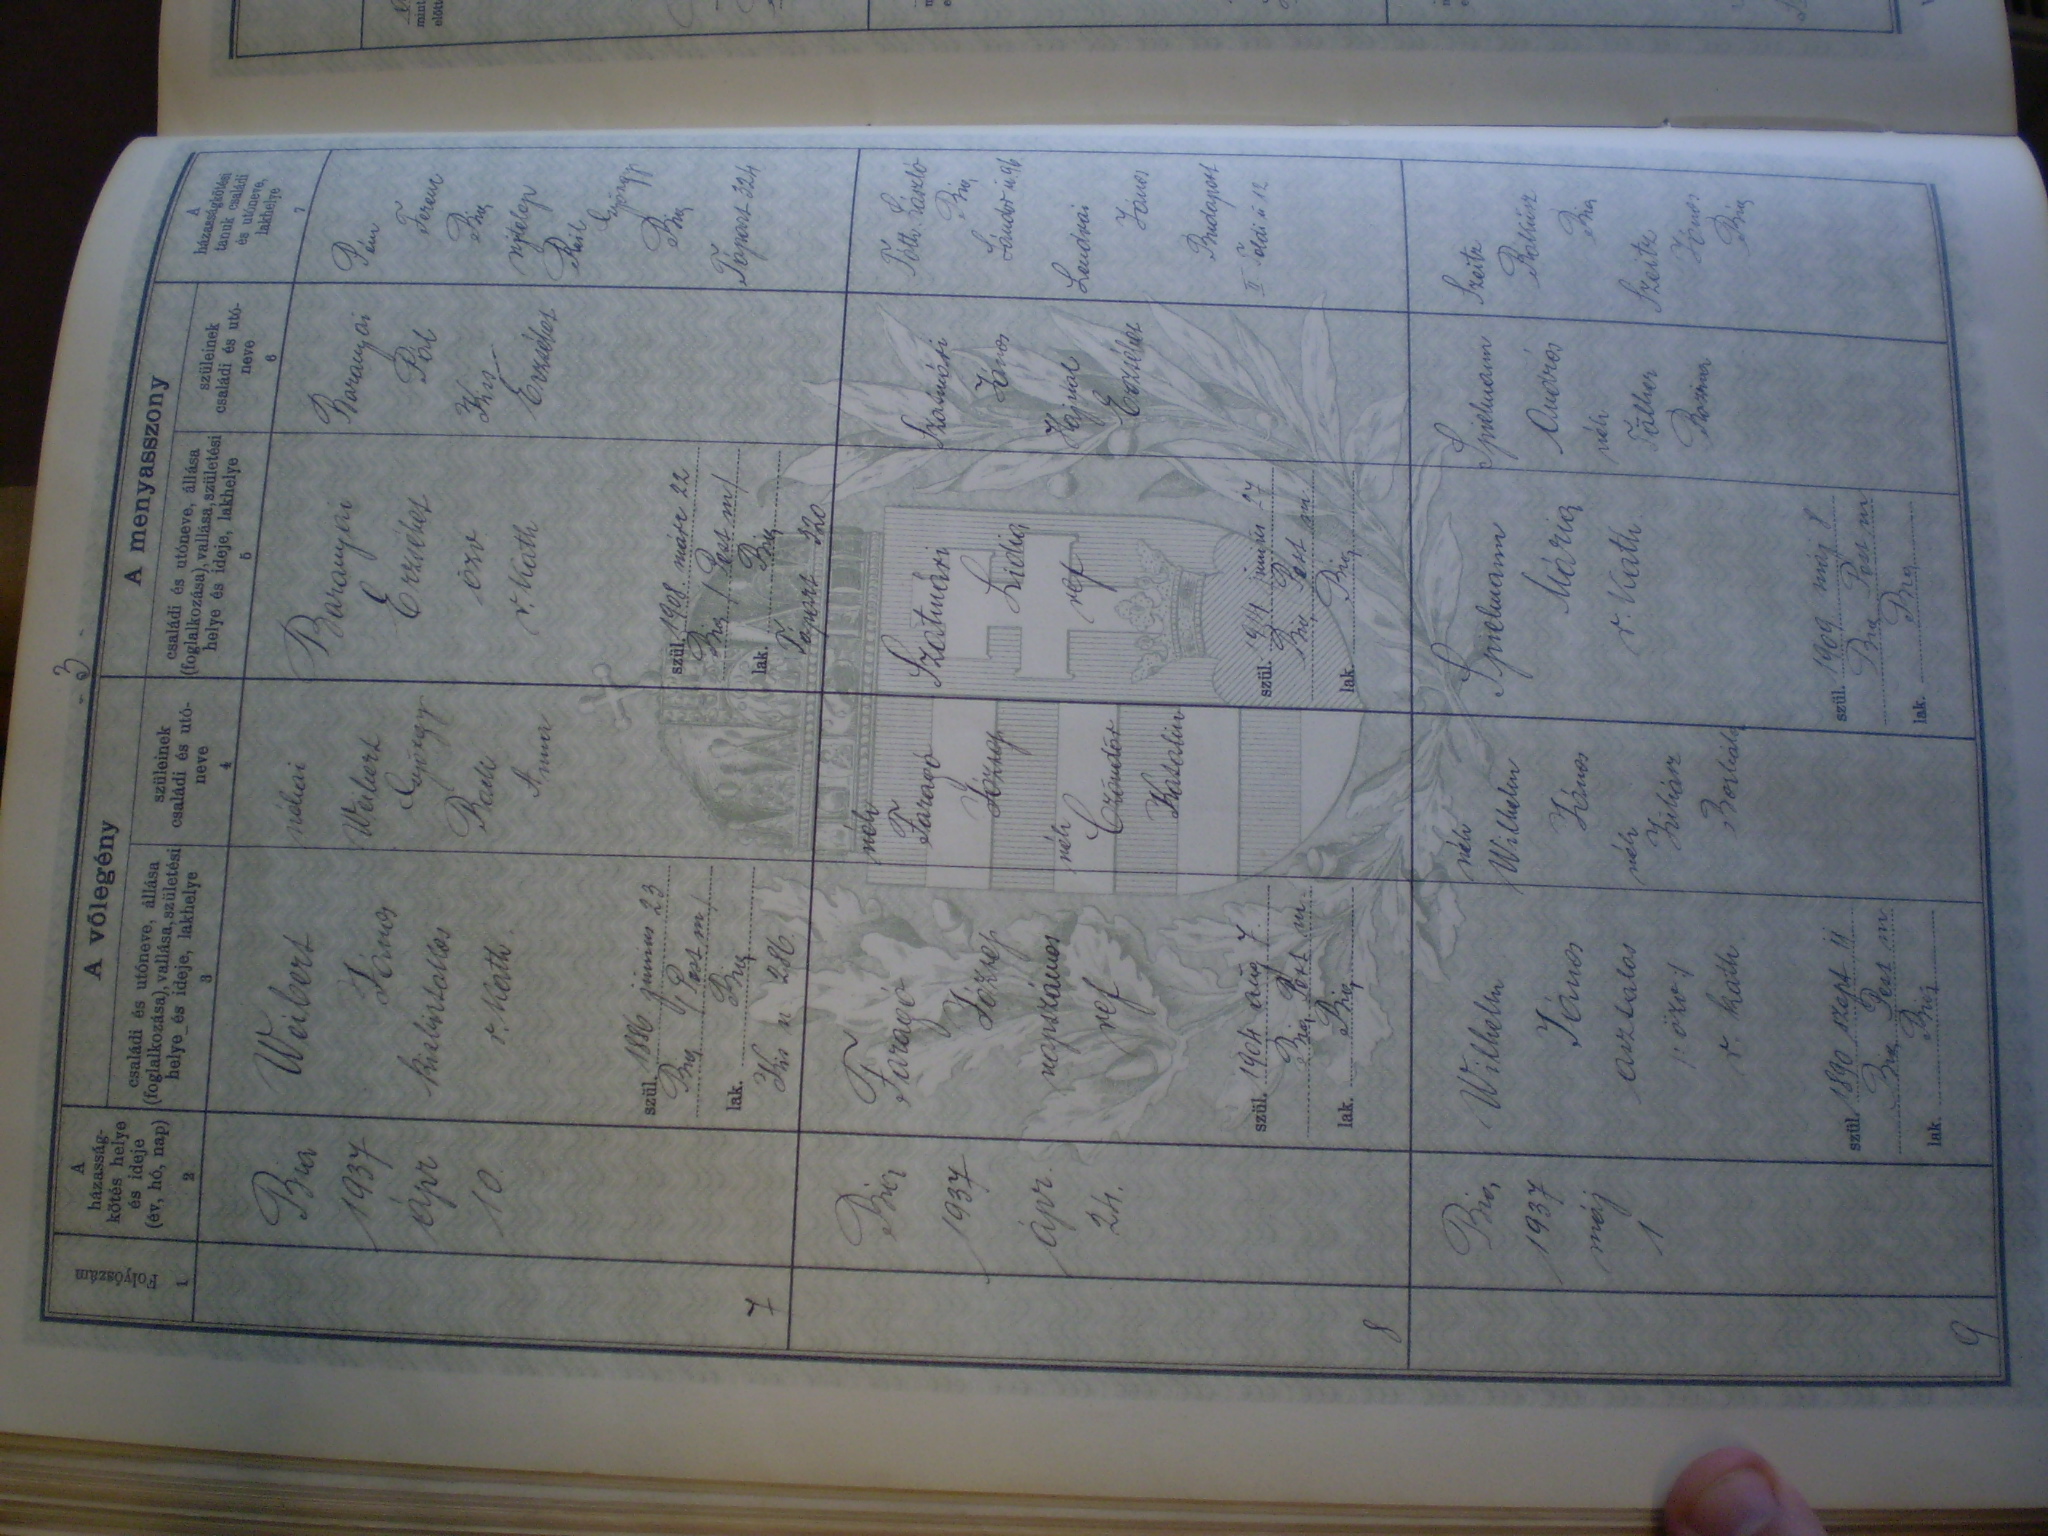 - 3 -
A vőlegény
A menyasszony
Folyószám
1
A
házasság-
kötés helye
és ideje
(év, hó, nap)
2
családi és utóneve, állása
(foglalkozása), vallása, születési
helye és ideje, lakhelye
3
szüleinek
családi és utó-
neve
4
családi és utóneve, állása
(foglalkozása), vallása, születési
helye és ideje, lakhelye
5
szüleinek
családi és utó-
neve
6
A
házasságkötési
tanuk családi
és utóneve,
lakhelye
7
7
Bia
1937
ápr
10.
Weibert
János
r. kath.
szül. 1886 junius 23
Bia / Pest m /
lak. Bia
286
néhai
Weibert
György
Anna
Baranyai
Erzsébet
özv
r. kath
szül. 1908. márc 22
Bia / Pest m /
lak. Bia
320
Baranyai
Pál
Kis
Erzsébet
Ferenc
Bia
György
Bia
324
8
Bia
1937
ápr.
24.
Faragó
József
napszámos
ref
szül. 1904 aug 7.
Bia Pest m.
lak. Bia
néh
Faragó
József
néh
Czöndör
Katalin
Szatmári
Lidia
ref
szül. 1914 junius 27
Bia Pest m.
lak Bia
Szatmári
János
Hajnal
Erzsébet
Tóth László
Bia
Lendvai
János
Budapest
9
Bia
1937
máj
1
Wilhelm
János
asztalos
/: özv :/
r. kath
szül. 1890 szept 11
Bia Pest m
lak. Bia
néh
Wilhelm
János
néh
Juhász
Borbála
Spielmann
Mária
r. kath
szül. 1909 máj 8
Bia Pest m
lak. Bia
Spielmann
András
néh
Rozina
Szeitz
Bia
Szeitz
János
Bia